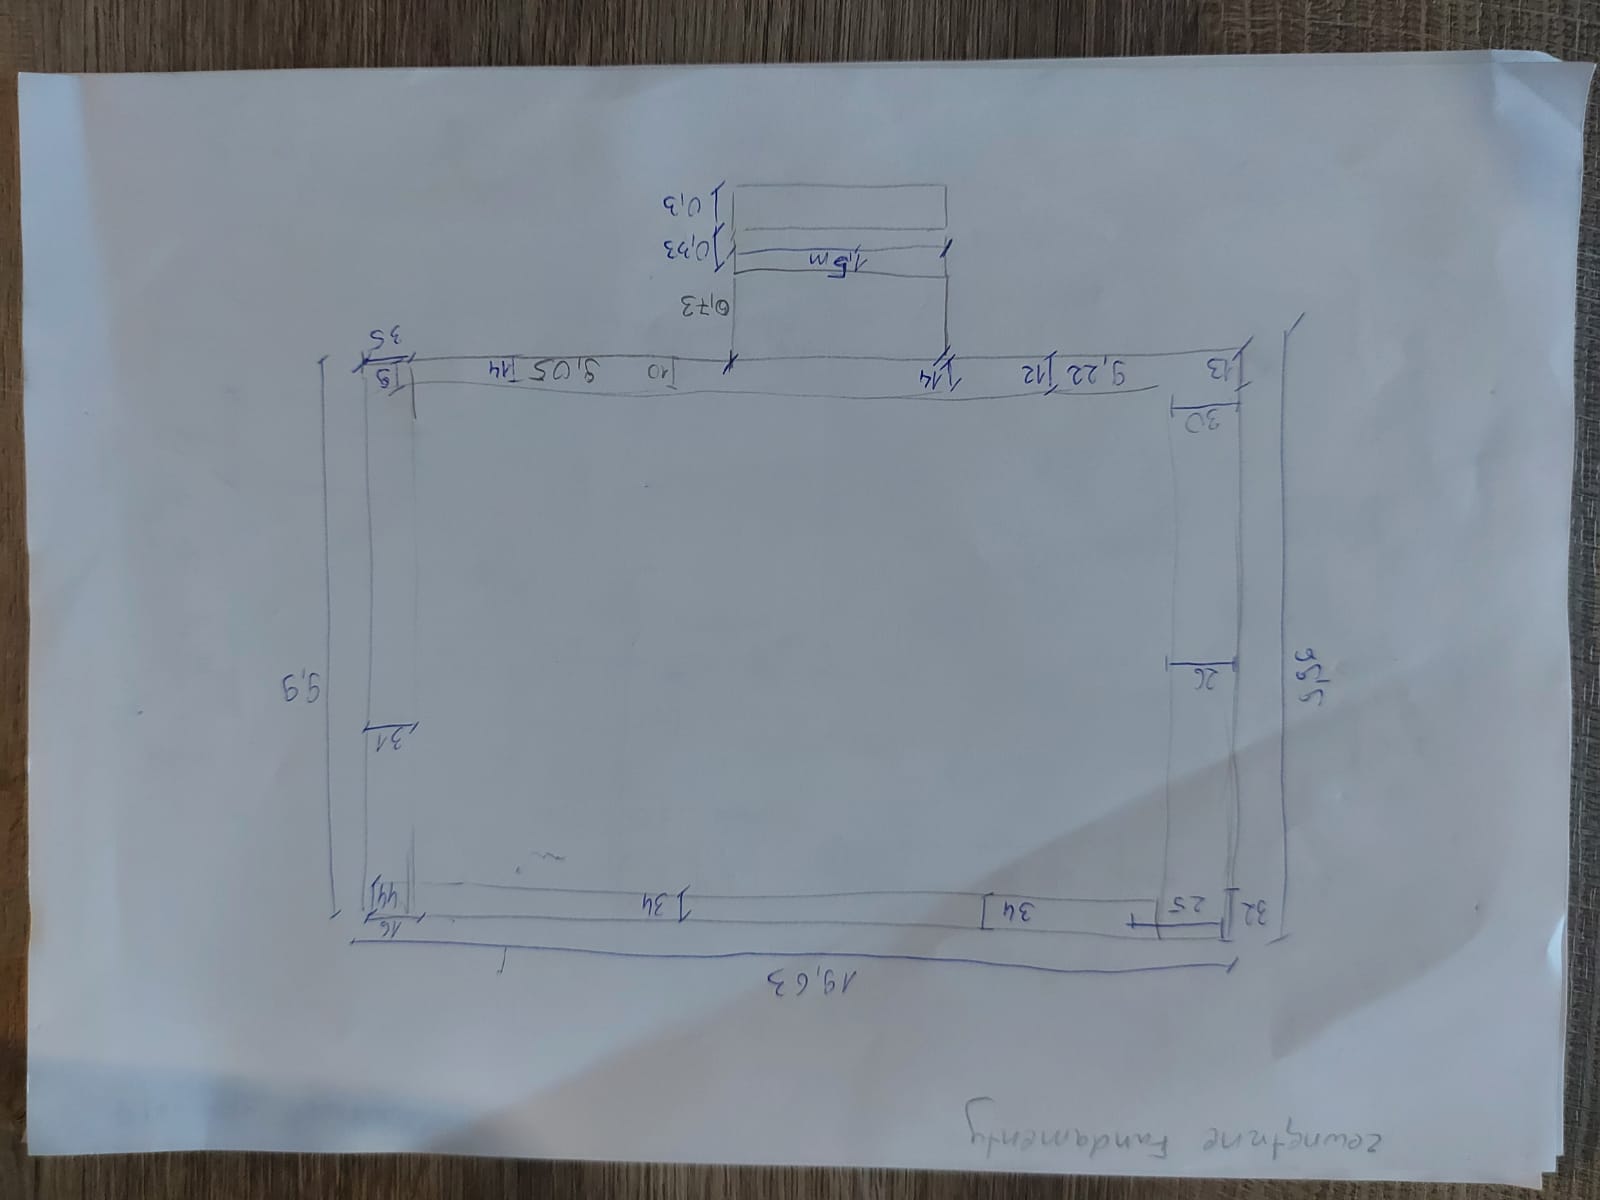 zewnętrzne Fundamenty
19,63
16
32 25 34 34 44
31
9,56
26
9,9
30
13 9,22 12 14 10 9,05 14 9
35
0,73
1,5m
0,33
0,3